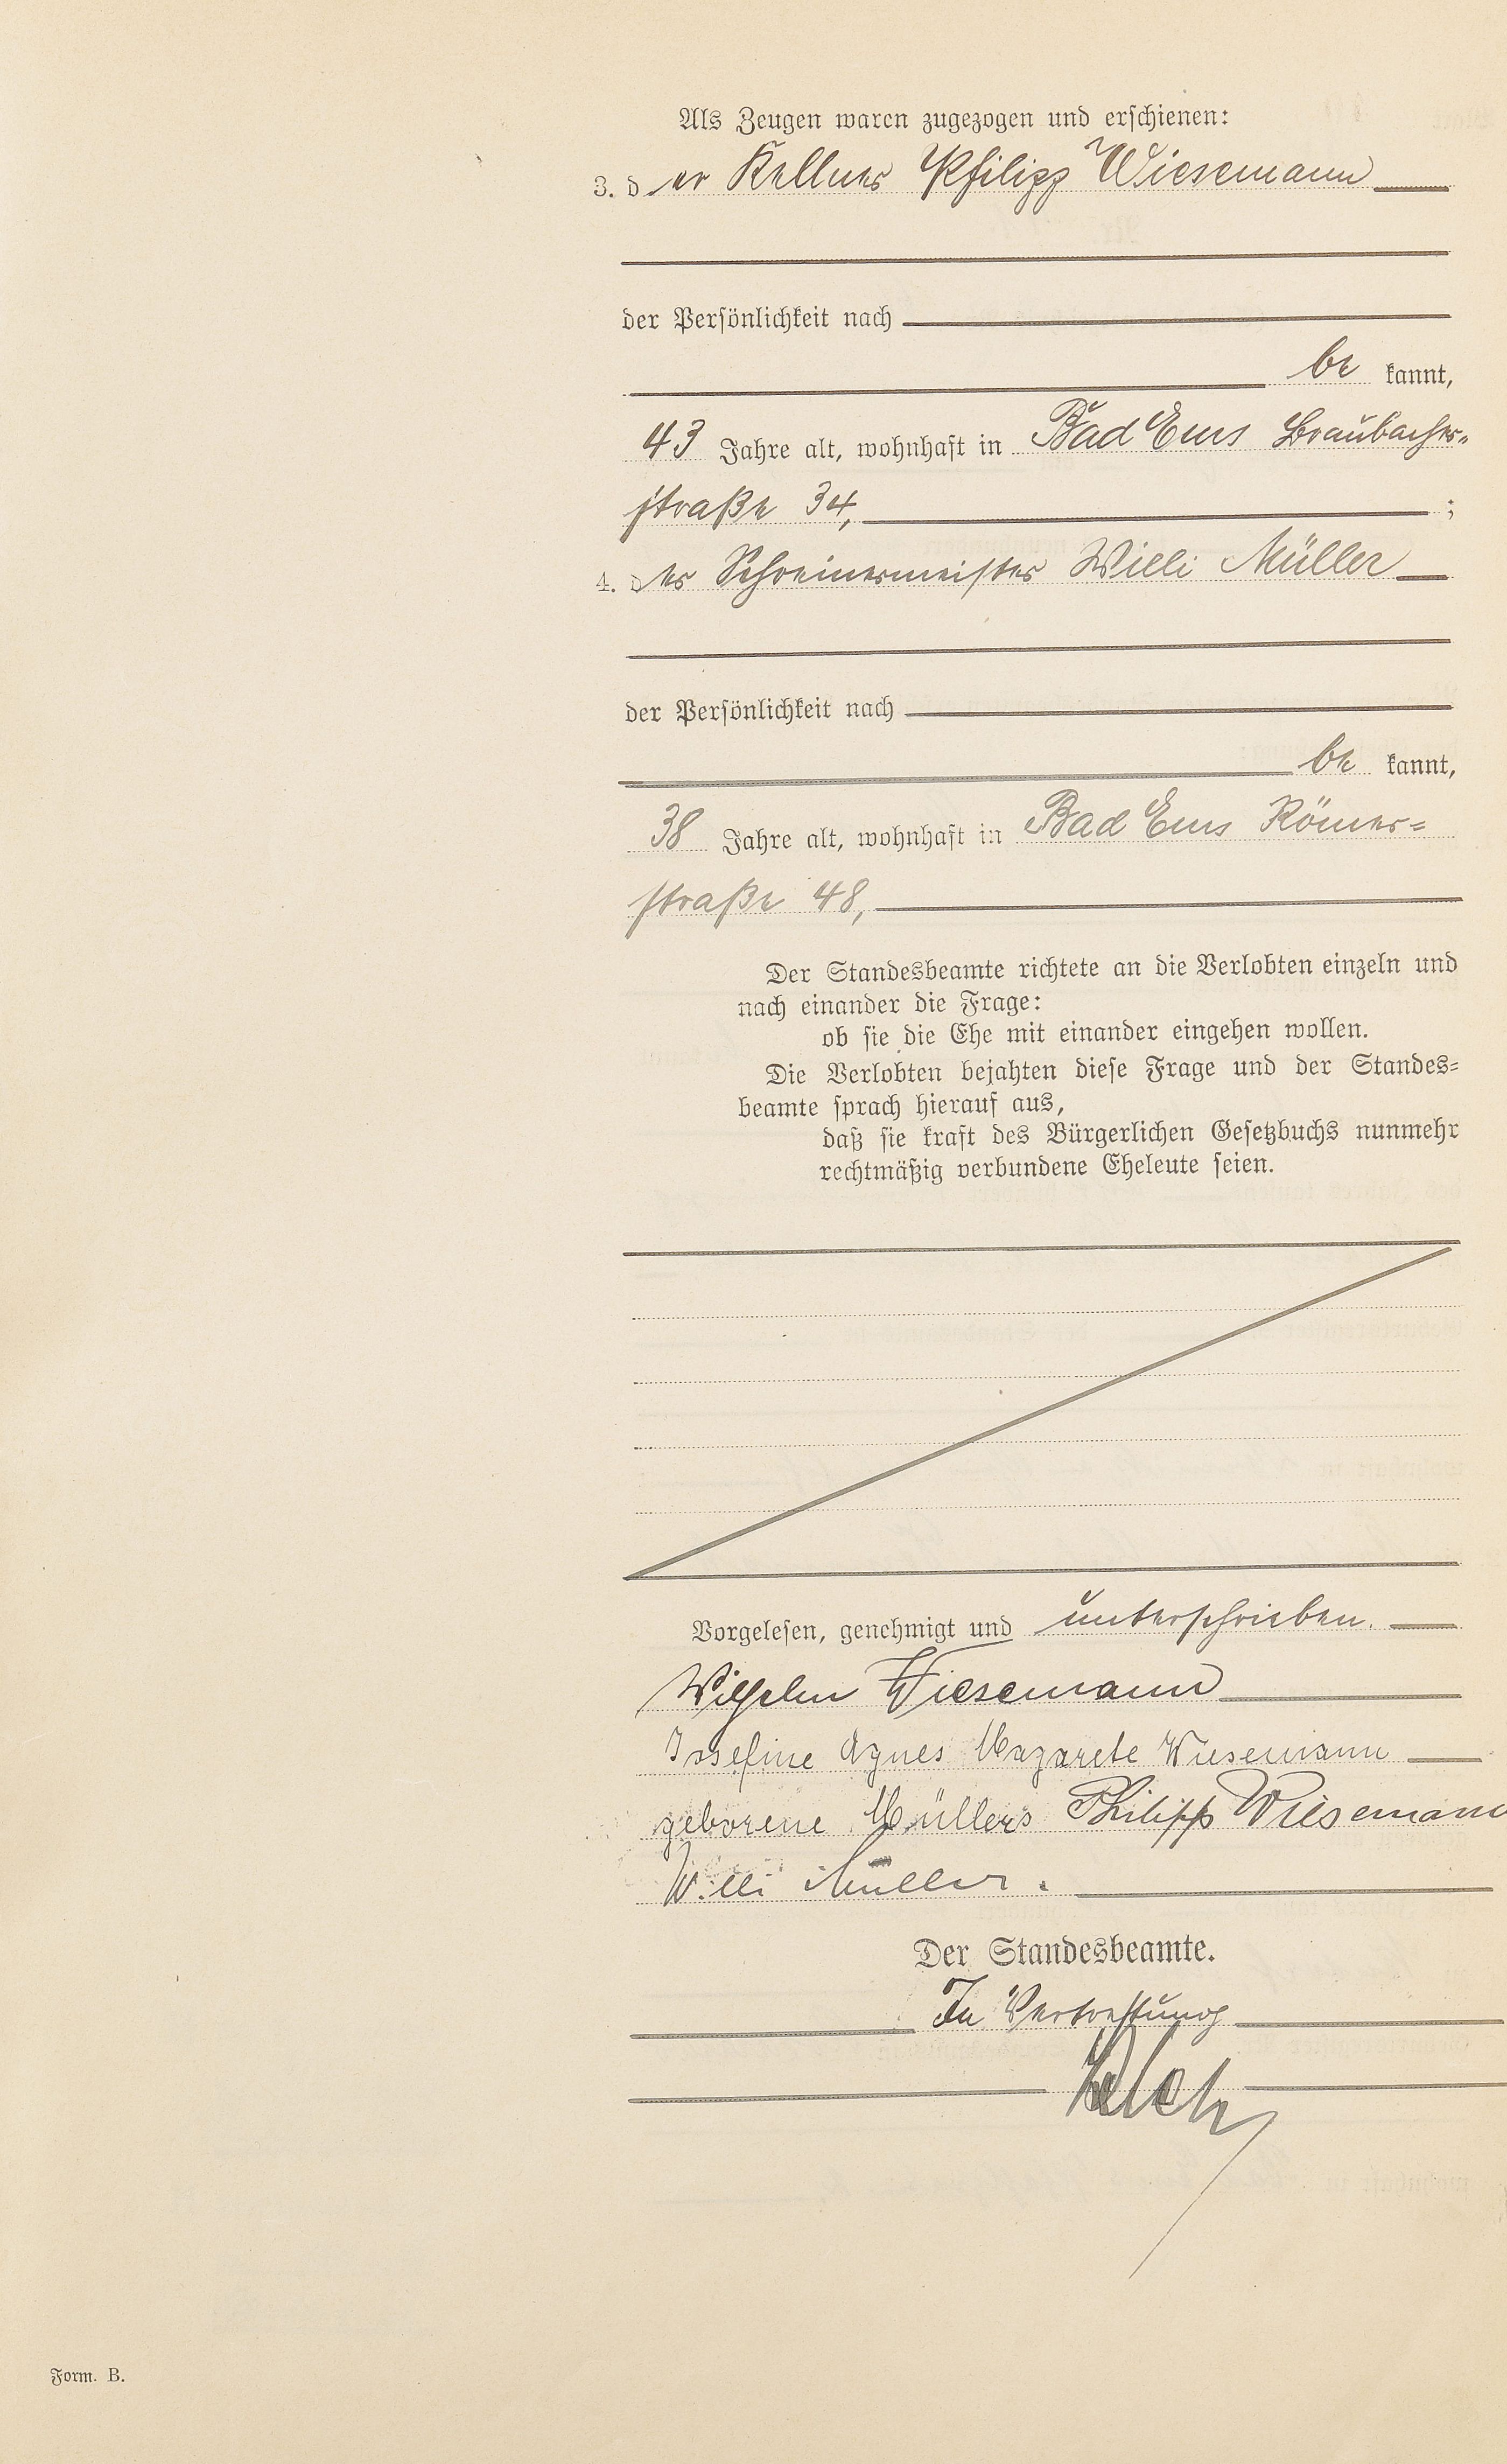 Als Zeugen waren zugezogen und erschienen:
3. der Kellner Philipp Wiesemann
der Persönlichkeit nach
be kannt,
43 Jahre alt, wohnhaft in Bad Ems Braubacher-
straße 34, ;
4. der Schreinermeister Willi Müller
der Persönlichkeit nach
be kannt,
38 Jahre alt, wohnhaft in Bad Ems Römer-
straße 48,
Der Standesbeamte richtete an die Verlobten einzeln und
nach einander die Frage:
ob sie die Ehe mit einander eingehen wollen.
Die Verlobten bejahten diese Frage und der Standes-
beamte sprach hierauf aus,
daß sie kraft des Bürgerlichen Gesetzbuchs nunmehr
rechtmäßig verbundene Eheleute seien.
Vorgelesen, genehmigt und unterschrieben.
Wilhelm Wiesemann
Josefine Agnes Margarete Wiesemann
geborene Müllers Philipp Wiesemann
Willi Müller.
Der Standesbeamte.
In Vertretung
Form. B.